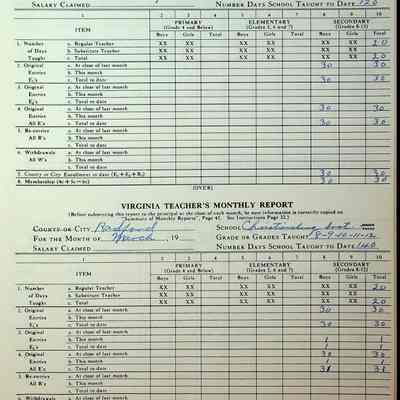 SALARY CLAIMED NUMBER DAYS SCHOOL TAUGHT TO DATE 120
1 2 3 4 5 6 7 8 9 10
ITEM PRIMARY (Grade 4 and Below) ELEMENTARY (Grades 5, 6 and 7) SECONDARY (Grades 8-12)
Boys Girls Total Boys Girls Total Boys Girls Total
1. Number a. Regular Teacher XX XX XX XX XX XX 20
of Days b. Substitute Teacher XX XX XX XX XX XX
Taught c. Total XX XX XX XX XX XX 20
2. Original a. At close of last month 30 30
Entries b. This month
E₁'s c. Total to date 30 30
3. Original a. At close of last month
Entries b. This month
E₂'s c. Total to date
4. Original a. At close of last month 30 30
Entries b. This month
All E's c. Total to date 30 30
5. Re-entries a. At close of last month
All R's b. This month
c. Total to date
6. Withdrawals a. At close of last month
All W's b. This month
c. Total to date
7. County or City Enrollment to date 30 30
8. Membership 30 30
[OVER]
VIRGINIA TEACHER'S MONTHLY REPORT
(Before submitting this report to the principal at the close of each month, be sure information is correctly copied on
"Summary of Monthly Reports", Page 41. See Instructions Page 32.)
COUNTY OR CITY Radford SCHOOL
FOR THE MONTH OF March, 19 GRADE OR GRADES TAUGHT 8-9-10-11-12
SALARY CLAIMED NUMBER DAYS SCHOOL TAUGHT TO DATE 140
1 2 3 4 5 6 7 8 9 10
ITEM PRIMARY (Grade 4 and Below) ELEMENTARY (Grades 5, 6 and 7) SECONDARY (Grades 8-12)
Boys Girls Total Boys Girls Total Boys Girls Total
1. Number a. Regular Teacher XX XX XX XX XX XX 20
of Days b. Substitute Teacher XX XX XX XX XX XX
Taught c. Total XX XX XX XX XX XX 20
2. Original a. At close of last month 30 30
Entries b. This month
E₁'s c. Total to date 30 30
3. Original a. At close of last month
Entries b. This month 1 1
E₂'s c. Total to date 1 1
4. Original a. At close of last month 30 30
Entries b. This month 1 1
All E's c. Total to date 31 31
5. Re-entries a. At close of last month
All R's b. This month
c. Total to date
6. Withdrawals a. At close of last month